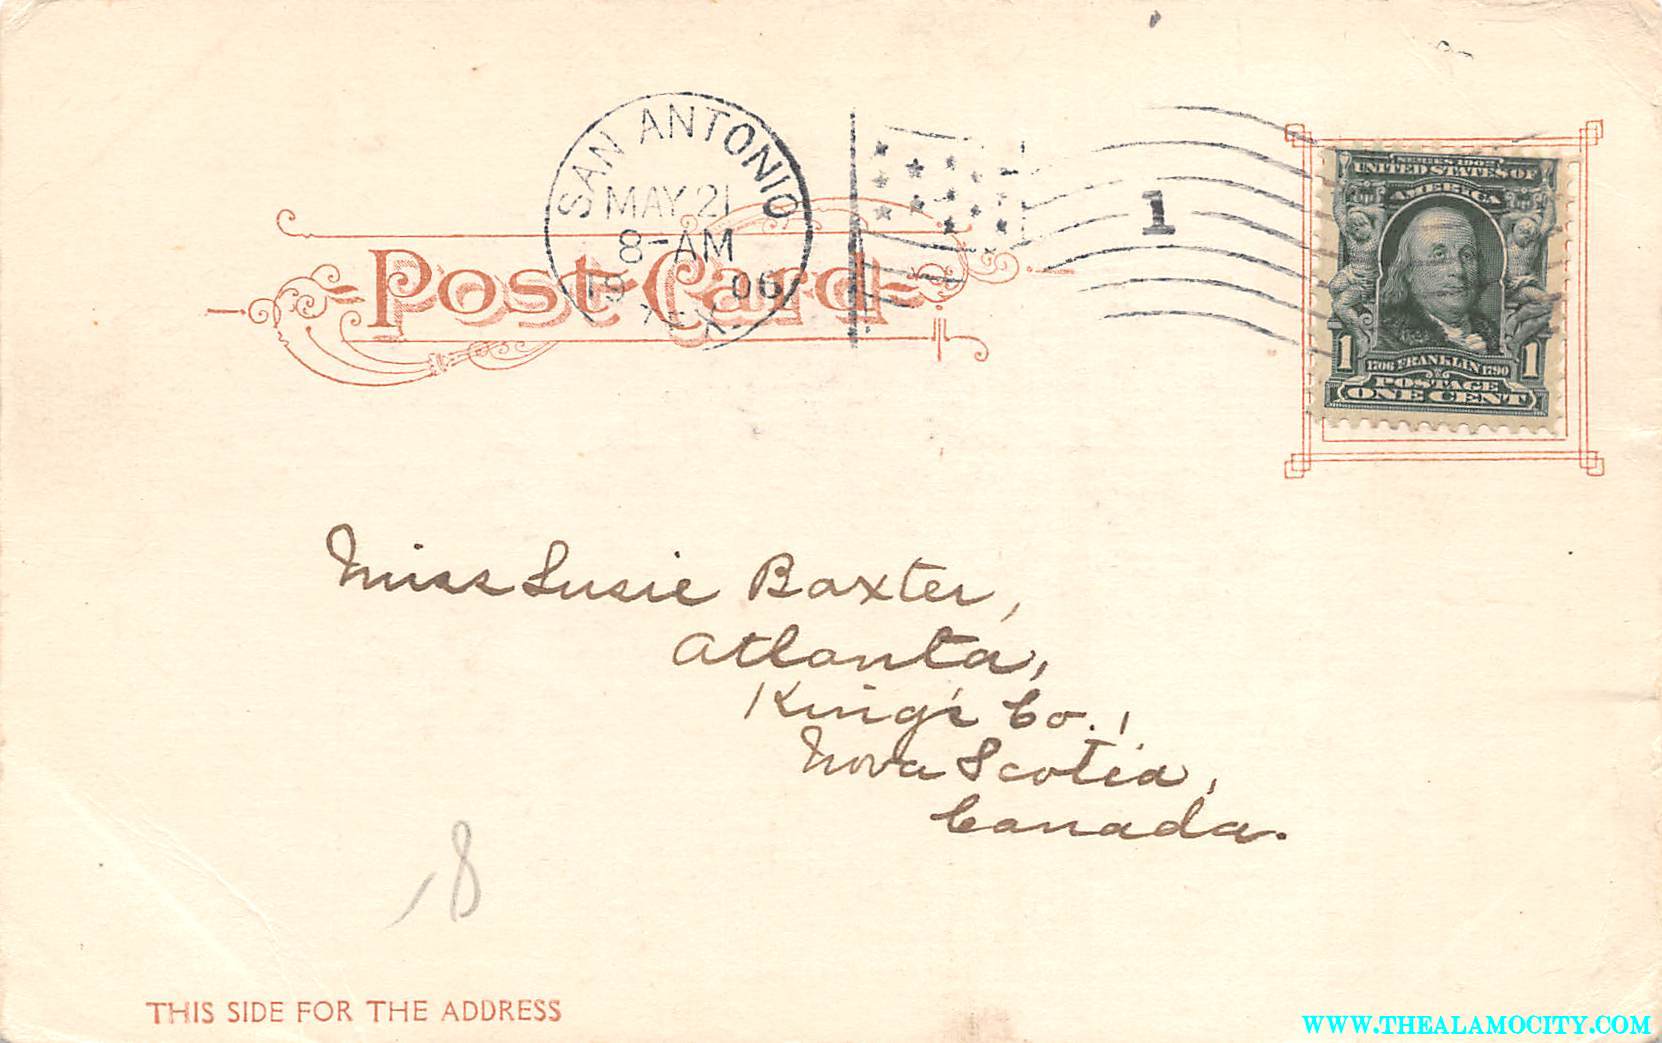 SAN ANTONIO
MAY 21
8-AM
19 06
TEX.
1
Post Card
SERIES 1902
UNITED STATES OF
AMERICA
1 1706 FRANKLIN 1790 1
POSTAGE
ONE CENT
Miss Susie Baxter,
Atlanta,
King's Co.,
Nova Scotia,
Canada.
18
THIS SIDE FOR THE ADDRESS
WWW.THEALAMOCITY.COM